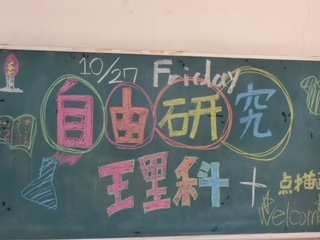 10/27 Friday
自由研究
理科 + 点描画
Welcome